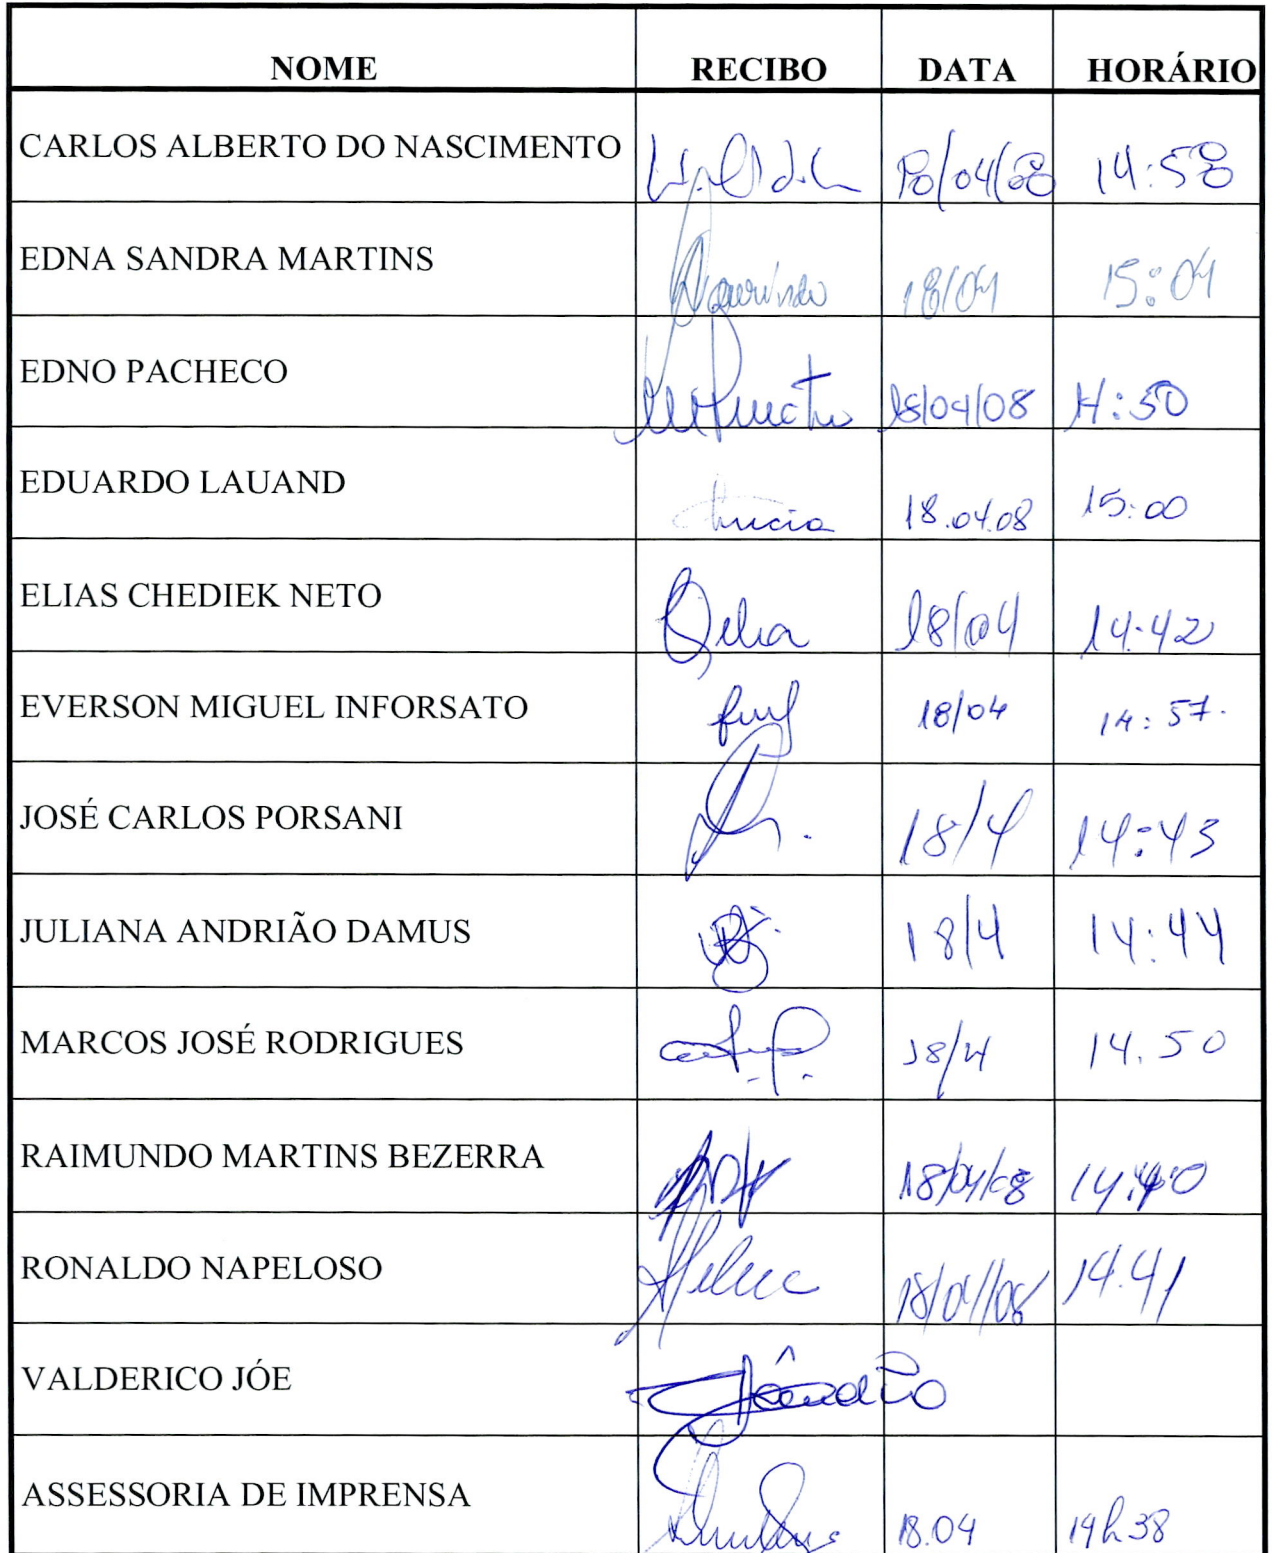 NOME RECIBO DATA HORÁRIO
CARLOS ALBERTO DO NASCIMENTO 18/04/08 14:58
EDNA SANDRA MARTINS 18/04 15:04
EDNO PACHECO 18/04/08 14:50
EDUARDO LAUAND Lucia 18.04.08 15:00
ELIAS CHEDIEK NETO Célia 18/04 14:42
EVERSON MIGUEL INFORSATO 18/04 14:57.
JOSÉ CARLOS PORSANI 18/4 14:43
JULIANA ANDRIÃO DAMUS 18/4 14:44
MARCOS JOSÉ RODRIGUES 18/4 14.50
RAIMUNDO MARTINS BEZERRA 18/04/08 14:40
RONALDO NAPELOSO 18/04/08 14.41
VALDERICO JÓE
ASSESSORIA DE IMPRENSA 18.04 14h38